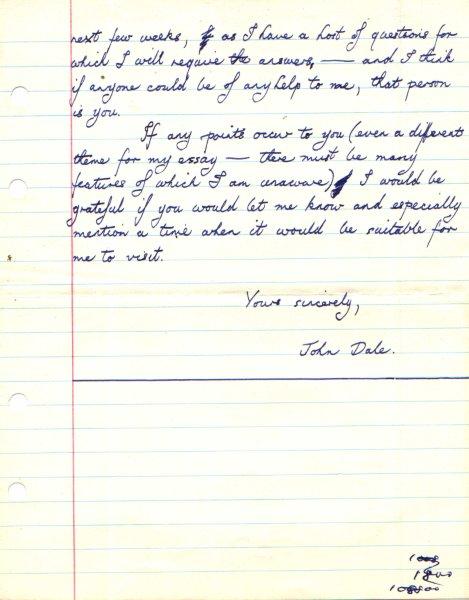 next few weeks, as I have a host of questions for
which I will require the answers, — and I think
if anyone could be of any help to me, that person
is you.
If any points occur to you (even a different
theme for my essay — there must be many
features of which I am unaware) I would be
grateful if you would let me know and especially
mention a time when it would be suitable for
me to visit.
Yours sincerely,
John Dale.